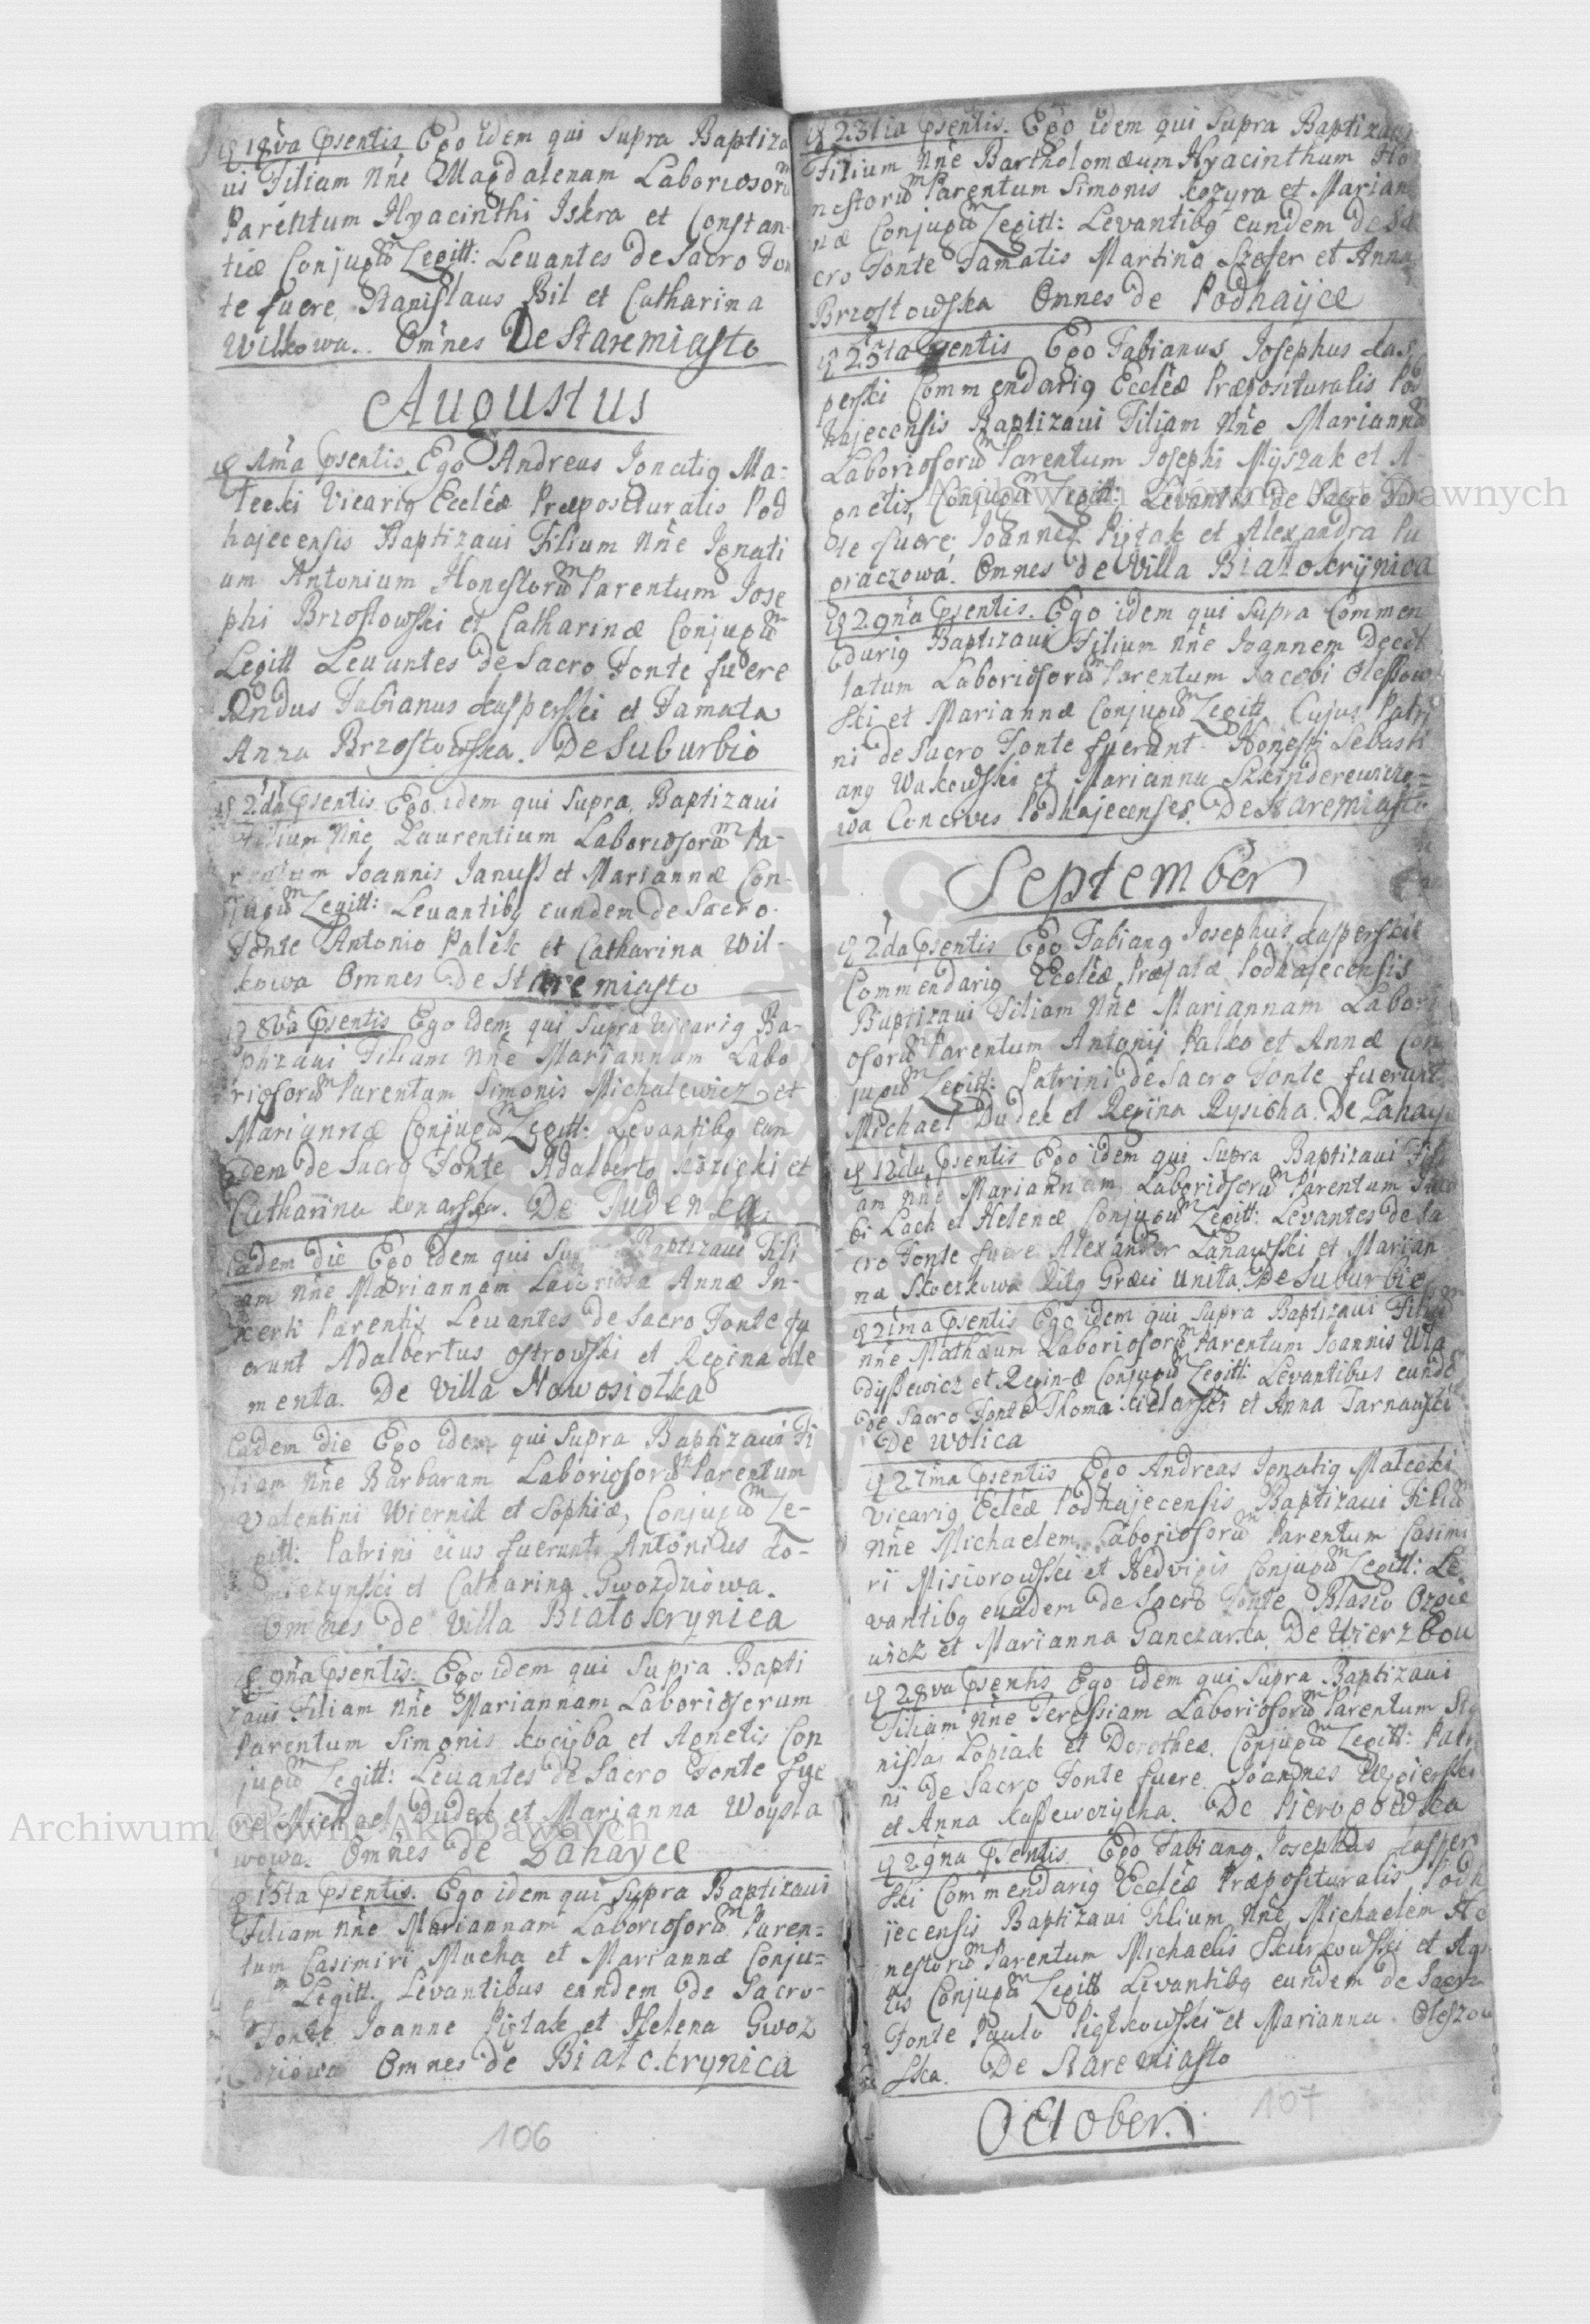 18va psentis Ego idem qui Supra Baptiza
ui Filiam Nñe Magdalenam Laboriosorũ
Parentum Hyacinthi Iskra et Constan-
tiæ Conjugũ Legitt: Leuantes de Sacro Fon
te fuere, Stanislaus Bil et Catharina
Wilkowa.. Omnes De Staremiasto
Augustus
1ma psentis Ego Andreas Ignatig Ma-
lecki Vicarig Eccleæ Præposituralis Pod
hajecensis Baptizaui Filium Nñe Ignati
um Antonium Honestorũ Parentum Jose
phi Brzostowski et Catharinæ Conjugũ
Legitt Leuantes de Sacro Fonte fuere
Rñdus Fabianus Kasperski et Famata
Anna Brzostowska. De Suburbio
2da psentis Ego idem qui Supra Baptizaui
Filium Nñe Laurentium Laboriosorũ Pa-
rentum Joannis Janusz et Mariannæ Con-
jugũ Legitt: Leuantibg eundem de Sacro
Fonte Antonio Palek et Catharina Wil-
kowa Omnes De Staremiasto
8va psentis Ego idem qui Supra Vicarig Ba-
ptizaui Filiam Nñe Mariannam Labo
riosorũ Parentum Simonis Michalewicz et
Mariannæ Conjugũ Legitt: Levantibg ean
dem de Sacro Fonte Adalberto Kozicki et
Catharina Konarska. De Iudenka
Eadem die Ego idem qui Supra Baptizaui Fili
am Nñe Mariannam Laboriosa Annæ In-
certi Parentis Leuantes de Sacro Fonte fu
erunt Adalbertus Ostrowski et Regina Kle
menta. De Villa Nowosiołka
Eadem die Ego idem qui Supra Baptizaui Fi
liam Nñe Barbaram Laboriosorũ Parentum
Valentini Wiernik et Sophiæ, Conjugũ Le-
gitt: Patrini eius fuerunt Antonius Ko-
et Catharina Gwozdziowa.
Omnes de Villa Białoskrynica
9na psentis. Ego idem qui Supra Bapti
zaui Filiam Nñe Mariannam Laboriosorum
Parentum Simonis Kocyba et Agnetis Con
jugũ Legitt: Leuantes de Sacro Fonte fue
re Michael Dudek et Marianna Woyta
wowa. Omnes de Zahayce
15ta psentis. Ego idem qui Supra Baptizaui
Filiam Nñe Mariannam Laboriosorũ Paren-
tum Casimiri Mucha et Mariannæ Conju-
gũ Legitt. Levantibus eandem de Sacro
Fonte Joanne Piętak et Helena Gwoz
dziowa Omnes de Białoskrynica
106
23tia psentis. Ego idem qui Supra Baptizaui
Filium Nñe Bartholomæum Hyacinthum Ho
nestorũ Parentum Simonis Kozyra et Marian
næ Conjugũ Legitt: Levantibg eundem de Sa
cro Fonte Famatis Martino Szefer et Anna
Brzostowska Omnes de Podhayce
25ta psentis Ego Fabianus Josephus Kas
perski Commendarig Eccleæ Præposituralis Pod
hajecensis Baptizaui Filiam Nñe Mariannã
Laboriosorũ Parentum Josephi Myszak et A-
gnetis, Conjugũ Legitt: Levantes de Sacro Fon
te fuere Joannes Piętak et Alexandra Pu
graczowa. Omnes de Villa Białoskrynica
29na psentis. Ego idem qui Supra Commen
darig Baptizaui Filium Nñe Joannem Decol
latum Laboriosorũ Parentum Jacobi Oleszow
ski et Mariannæ Conjugũ Legitt Cujus Patri
ni de Sacro Fonte fuerunt Honesti Sebasti
ang Wakowski et Marianna Szkinderewiczo-
wa Concives Podhajecenses. De Staremiasto
September
2da psentis Ego Fabiang Josephus Kasperski
Commendarig Eccleæ Præfatæ Podhajecensis
Baptizaui Filiam Nñe Mariannam Labori
osorũ Parentum Antonij Palko et Annæ Con
jugũ Legitt: Patrini de Sacro Fonte fuerunt
Michael Dudek et Regina Rysicha. De Zahayce
12da psentis Ego idem qui Supra Baptizaui Fili
am Nñe Mariannam Laboriosorũ Parentum Jaco
bi Lach et Helenæ Conjugũ Legitt: Levantes de Sa
cro Fonte fuere Alexander Lanawski et Marian
na Skorkowa Ritg Græci Unita. De Suburbio
21ma psentis Ego idem qui Supra Baptizaui Filiũ
Nñe Mathæum Laboriosorũ Parentum Joannis Wla
dyszewicz et Reginæ Conjugũ Legitt: Levantibus eundẽ
de Sacro Fonte Thoma Cielarski et Anna Tarnawski
De Wolica
27ma psentis Ego Andreas Ignatig Malecki
Vicarig Eccleæ Podhajecensis Baptizaui Filiũ
Nñe Michaelem Laboriosorũ Parentum Casimi
ri Misiorowski et Hedvigis Conjugũ Legitt: Le
vantibg eundem de Sacro Fonte Blasio Ozgie
wicz et Marianna Ganczarka. De Wierzbow
28va psentis Ego idem qui Supra Baptizaui
Filiam Nñe Teressiam Laboriosorũ Parentum Sta
nislai Lopiak et Dorotheæ Conjugũ Legitt: Patri
ni de Sacro Fonte fuere. Joannes Wegierski
et Anna Kaszewczycha. De Siero
29na psentis. Ego Fabiang Josephus Kasper
ski Commendarig Eccleæ Præposituralis Podh
jecensis Baptizaui Filium Nñe Michaelem Ho
nestorũ Parentum Michaelis Skurkowski et Agne
tis Conjugũ Legitt Levantibg eundem de Sacro
Fonte Paulo Piętkowski et Marianna Oleszow
ska. De Staremiasto
October.
107
Archiwum Główne Akt Dawnych
Archiwum Główne Akt Dawnych